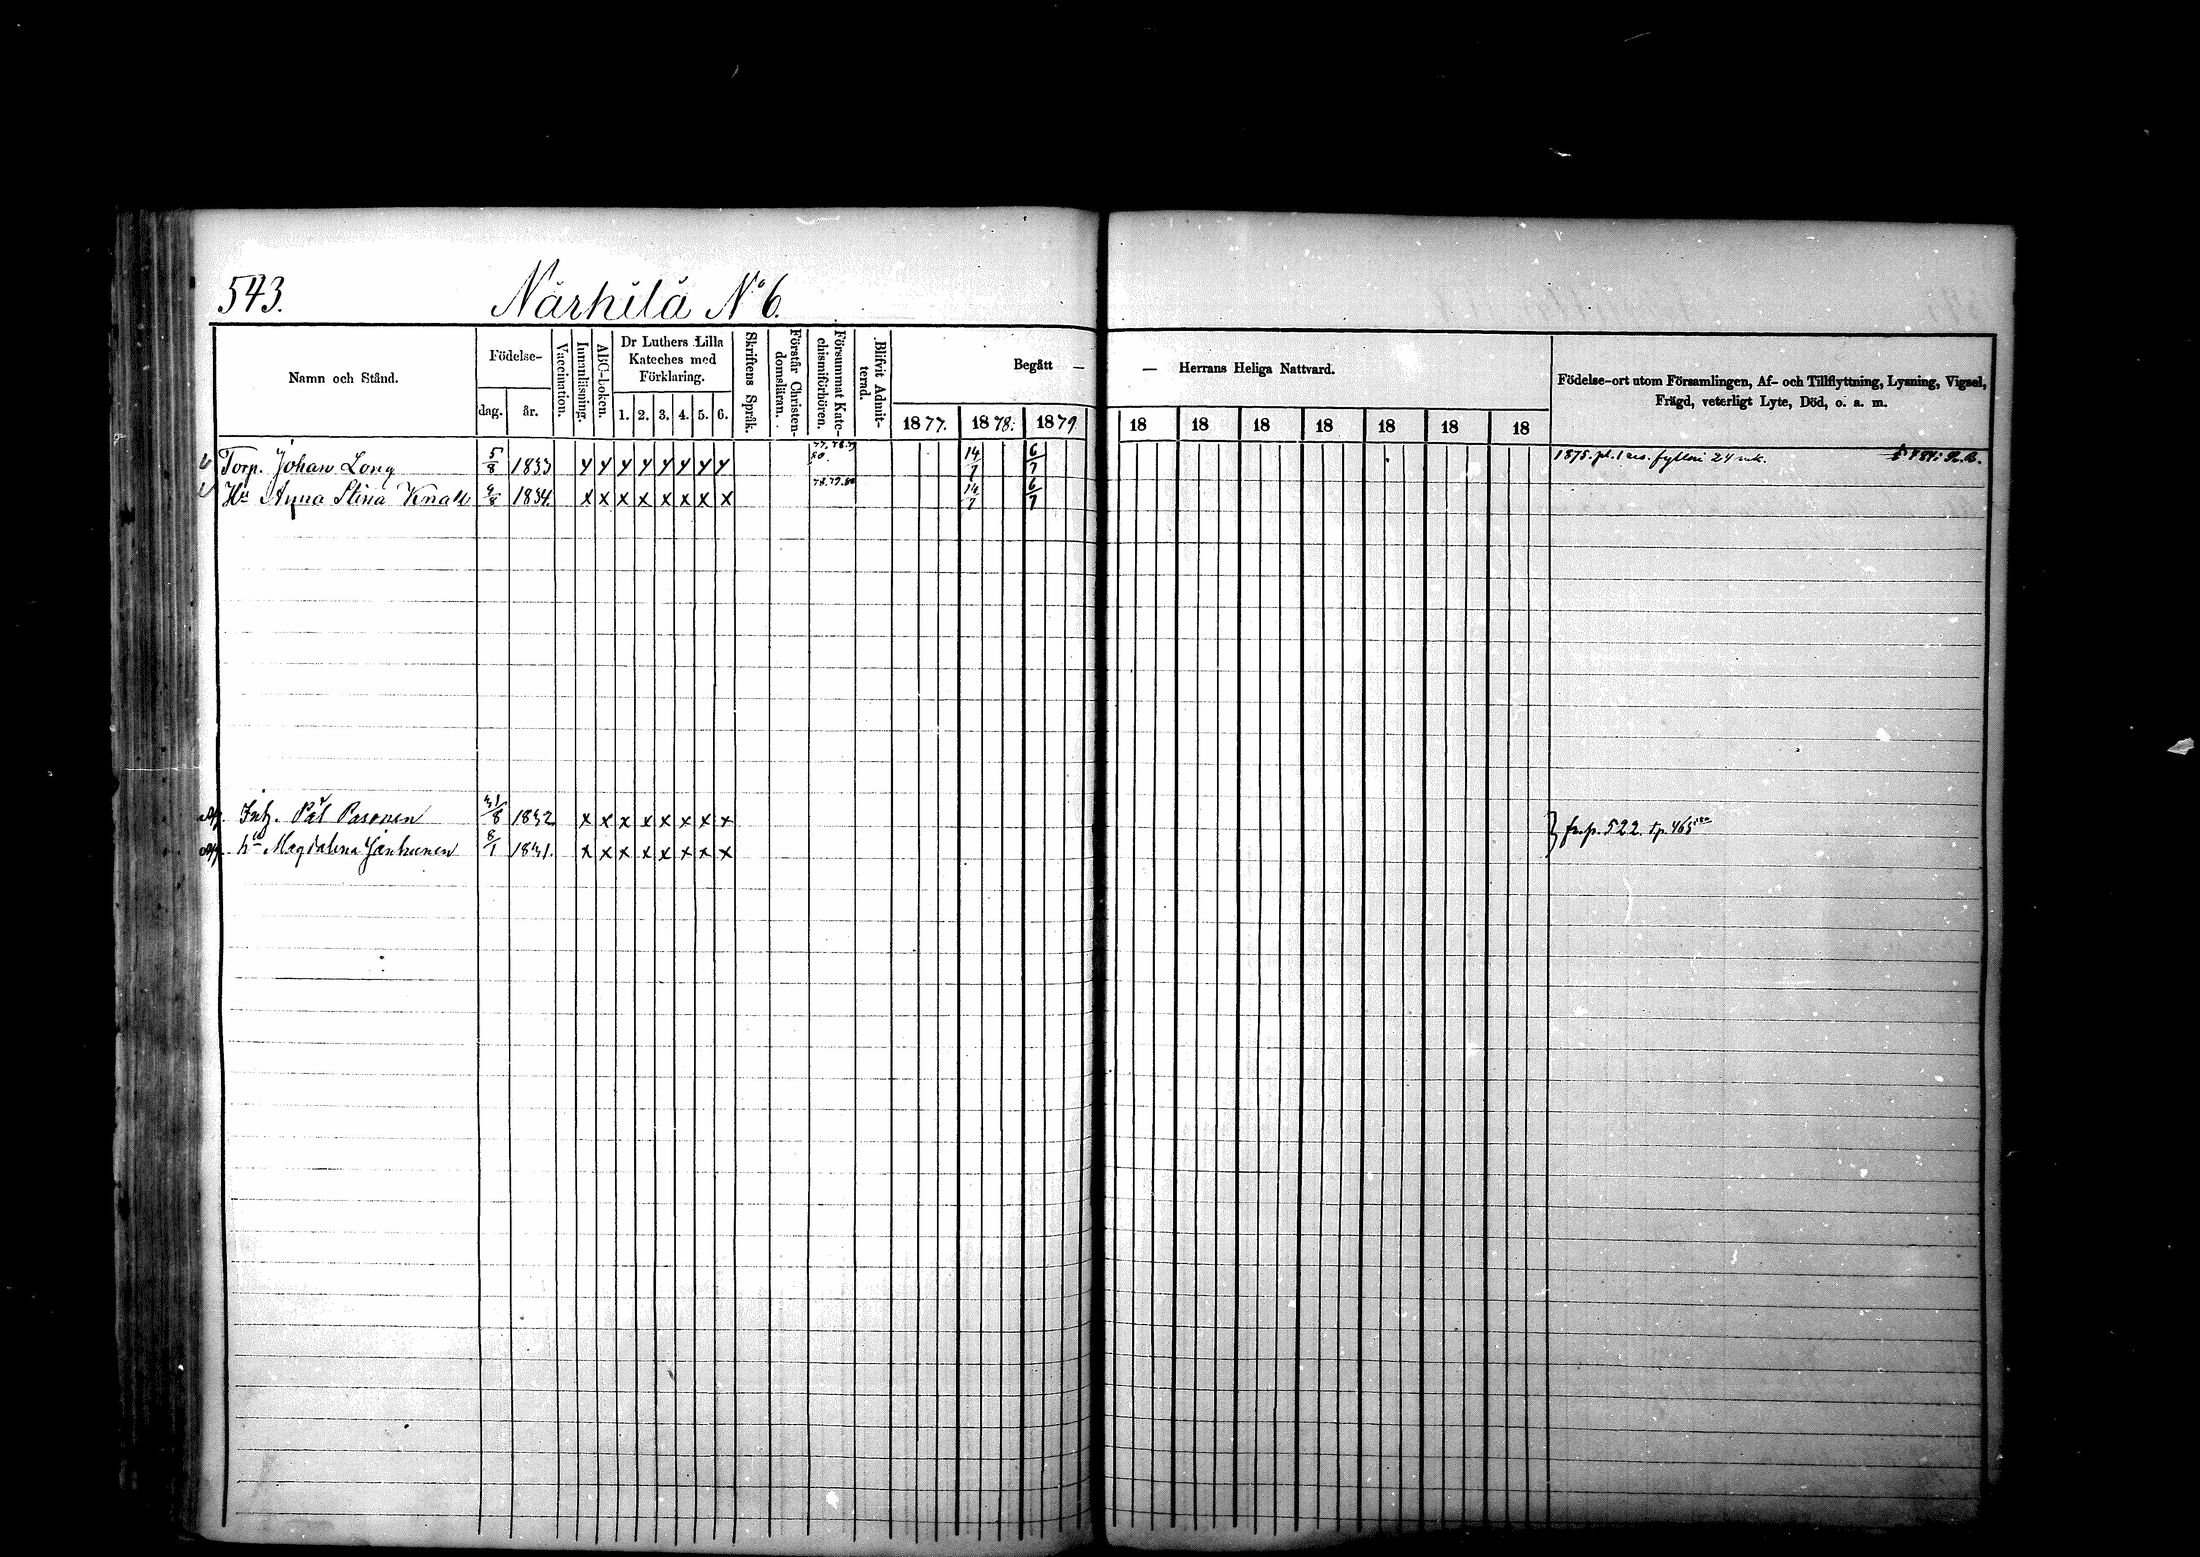 543. Närhilä No 6.
Namn och Stånd. Födelse- dag. år. Vaccination. Innanläsning. ABC-boken. Dr Luthers Lilla Kateches med Förklaring. 1. 2. 3. 4. 5. 6. Skriftens Språk. Förstår Christendomsläran. Försummat Katechismiförhören. Blifvit Admitterad. Begått — — Herrans Heliga Nattvard. Födelse-ort utom Församlingen, Af- och Tillflyttning, Lysning, Vigsel, Frägd, veterligt Lyte, Död, o. a. m.
1877. 1878. 1879 18 18 18 18 18 18 18
Torp. Johan Long 5/8 1833 y y y y y y y y 77. 78. 79 80. 14/7 6/7 1875. pl. 1 res. fylleri 24 mk.
Hu Anna Stina 4/8 1834. x x x x x x x x 78. 79. 80 14/7 6/7
Inh. Pål Pasonen 31/8 1832 x x x x x x x x } fr. p. 522. t. p. 465
hu Magdalena Janhunen 8/1 1831. x x x x x x x x